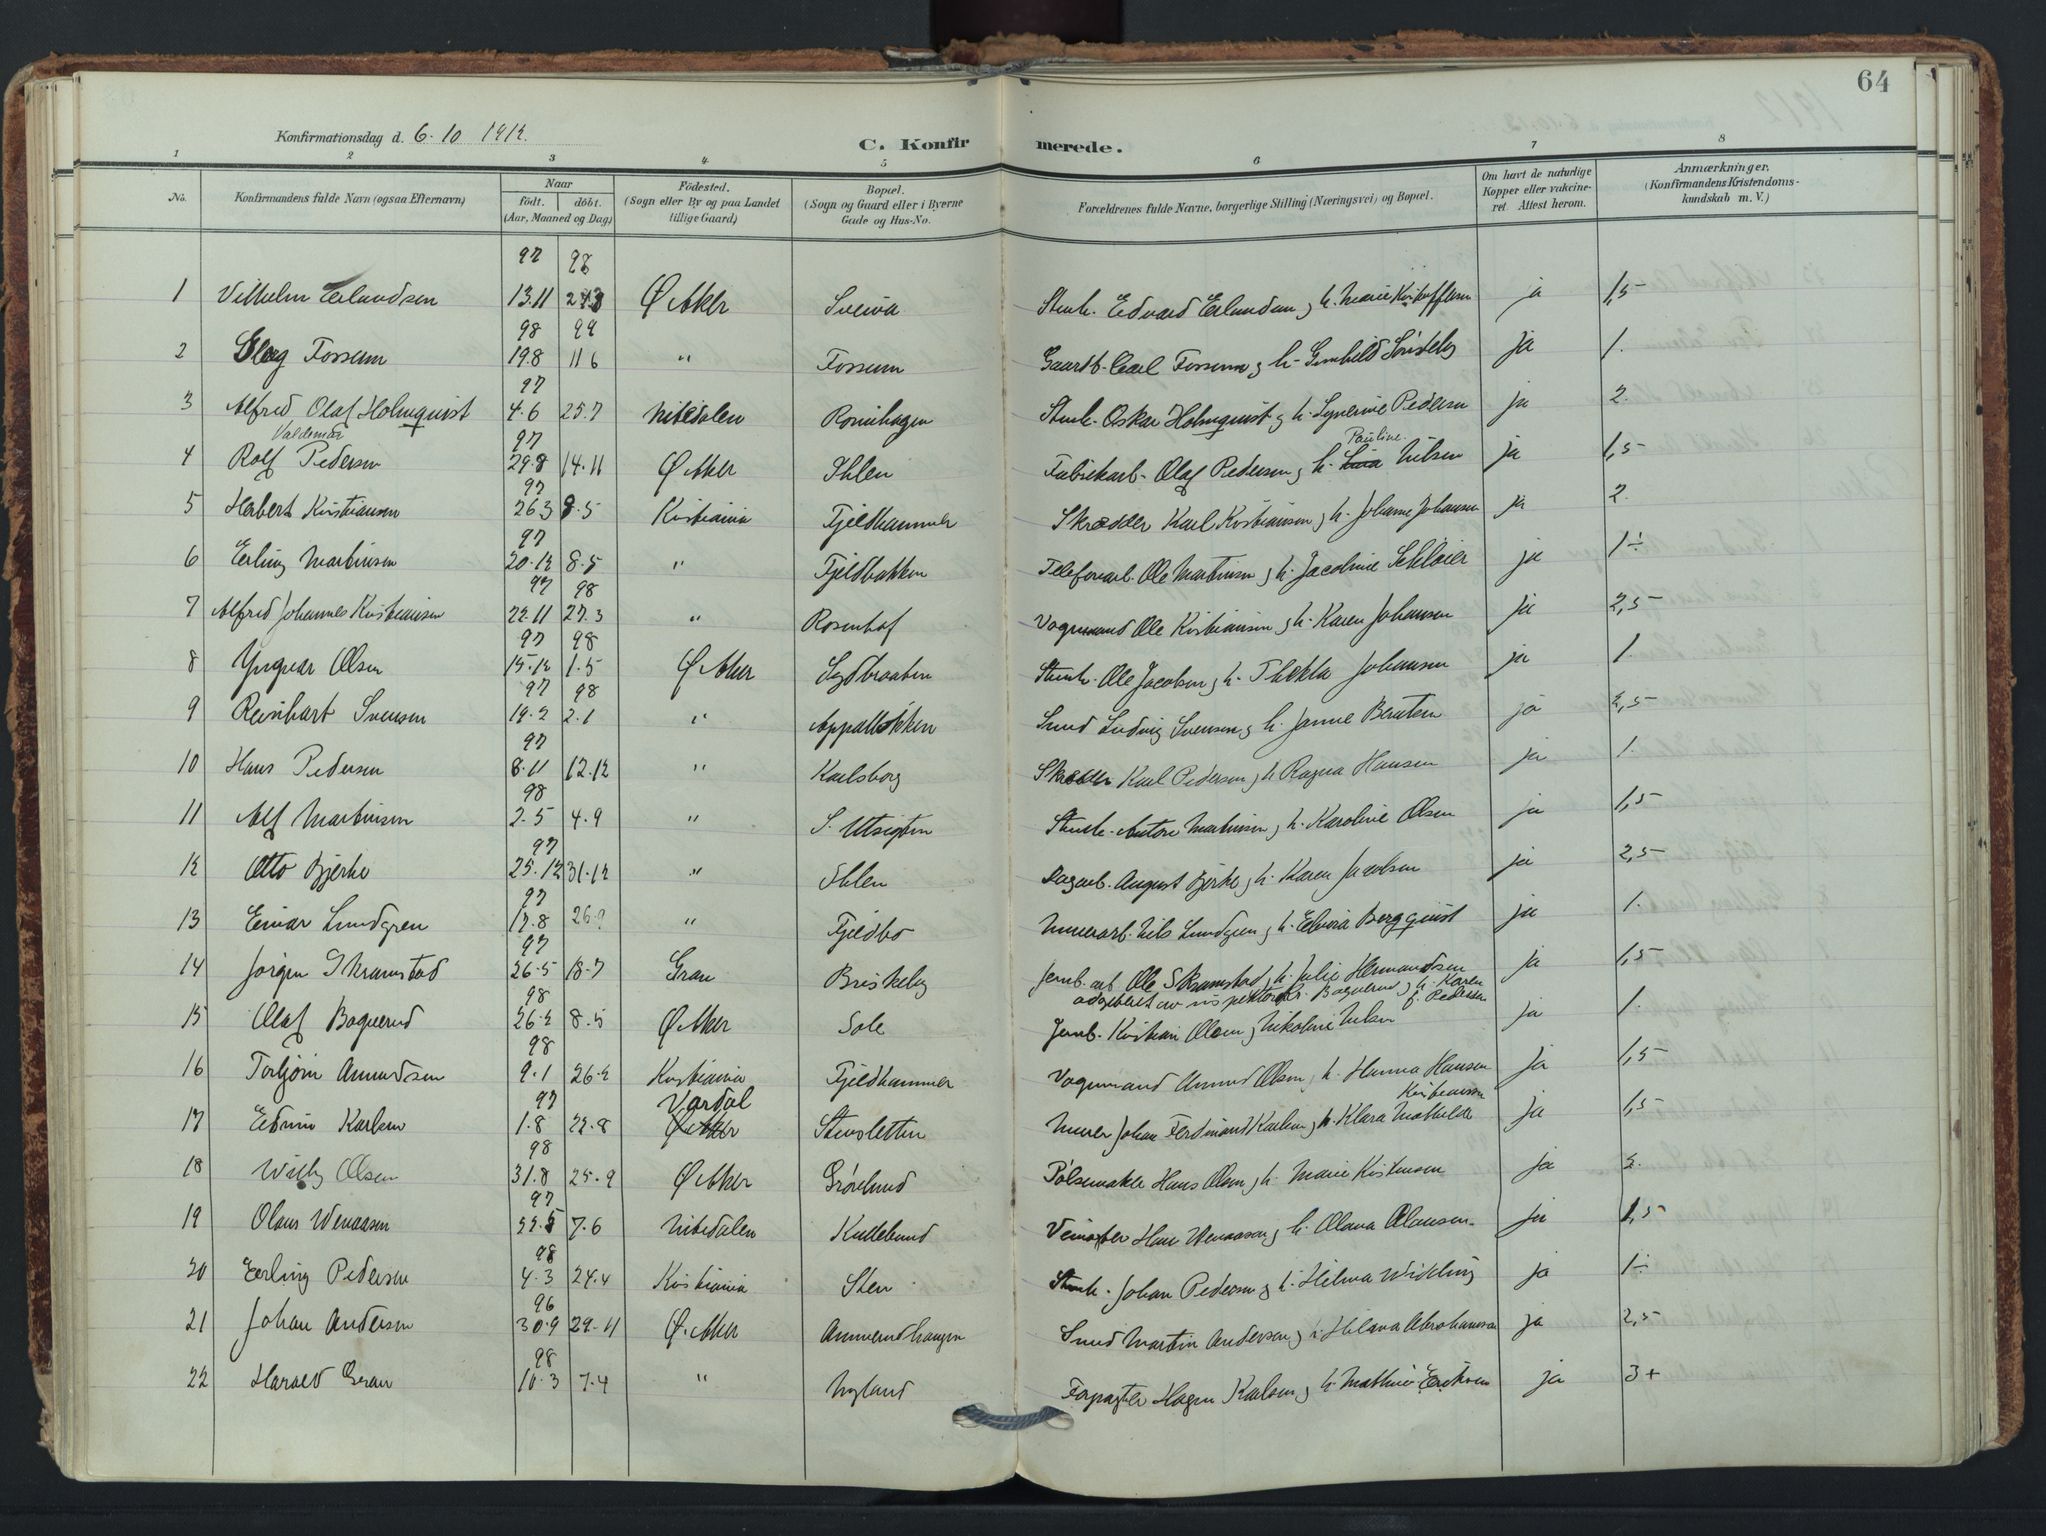 64
Konfirmationsdag d. 6. 10 1912.
C. Konfirmerede.
1 2 3 4 5 6 7 8
No.
Konfirmandens fulde Navn (ogsaa Efternavn)
Naar
födt. döbt.
(Aar, Maaned og Dag)
Födested.
(Sogn eller By og paa Landet
tillige Gaard)
Bopæl.
(Sogn og Gaard eller i Byerne
Gade og Hus-No.
Forældrenes fulde Navne, borgerlige Stilling (Næringsvei) og Bopæl.
Om havt de naturlige
Kopper eller vakcine-
ret. Attest herom.
Anmærkninger.
(Konfirmandens Kristendoms-
kundskab m. V.)
97 98
1 Vilhelm Erlandsen 13.11 Ø. Aker Edvard Erlandsen, h. Marie ja 1,5
98 99
2 Fossum 19.8 11 6 " Fossum Gaardb. Carl Fossum, h. ja 1.
97
3 Alfred Olaf Holmquist 4.6 25.7 Nitedalen Oskar Holmquist, h. Pedersen ja 2.
Valdemar Pauline.
97
4 Rolf Pedersen 29.8 14.11 Ø. Aker Ihlen Fabrikarb. Olaf Pedersen, h. Nilsen ja 1,5
97
5 Herbert Kristiansen 26 3 8.5 Kristiania Fjeldhammer Skrædder Karl Kristiansen, h. Johanne Johansen ja 2.
97
6 Erling Martinsen 20.12 8.5 " Fjeldbakken Telefonarb. Ole Martinsen, h. Jacobine ja 1÷
97 98
7 Alfred Johannes Kristiansen 22.11 27.3 " Rosenhof Vognmand Ole Kristiansen, h. Karen Johansen ja 2,5
97 98
8 Yngvar Olsen 15.12 1.5 Ø. Aker Ole Jacobsen, h. Thekla Johansen ja 1.
97 98
9 Reinhart Svensen 19.2 2.1 " Smed Ludvig Svensen, h. Janne Berntsen ja 2,5
97
10 Hans Pedersen 8.11 12.12 " Karlsborg Skrædder Karl Pedersen, h. Ragna Hansen ja 1.
98
11 Alf Martinsen 2.5 4.9 " S. Utsigten Martinsen, h. Karoline Olsen ja 1,5
97
12 Otto Bjerke 25.12 31.12 " Ihlen Dagarb. August Bjerke, h. Karen Jacobsen ja 2,5
97
13 Einar Lundgren 17.8 " Fjeldbo Murerarb. Nils Lundgren, h. Bergquist ja 1.
97
14 Jørgen Skramstad 26.5 18.7 Gran Briskeby Jernb. arb. Ole Skramstad, h. Julie Hermandsen ja 1,5
adopteret av Bagerud, h. Karen
f. Pedersen
98
15 Olaf Bagerud 26.2 8.5 Ø. Aker Sole Jernb. Kristian Olsen, Nikoline Nilsen ja 1.
98
16 Torbjørn Amundsen 9.1 26.2 Kristiania Fjeldhammer Vognmand Amund Olsen, h. Hanna Hansen ja 1,5
97 Vardal Kristiansen
17 Edvin Karlsen 1.8 22.8 Ø. Aker Stensletten Murer Johan Ferdinand Karlsen, h. Klara Mathilde ja 1,5
98
18 Willy Olsen 31.8 25.9 Ø. Aker Grønlund Pølsemaker Hans Olsen, h. Marie Kristensen ja 2.
97
19 Olaus Wenaasen 7.6 Nitedalen Kullebund Hans Wenaasen, h. Olava Olausen ja 1,5
98
20 Erling Pedersen 4.3 24.4 Kristiania Sten Johan Pedersen, h. Hilma ja 1÷
96
21 Johan Andersen 30.9 29.11 Ø. Aker Smed Martin Andersen, h. Abrahamsen ja 2,5
98
22 Harald Gran 10.3 7.4 " Nyland Forpagter Hagen Karlsen, h. Mathie Eriksen ja 3+